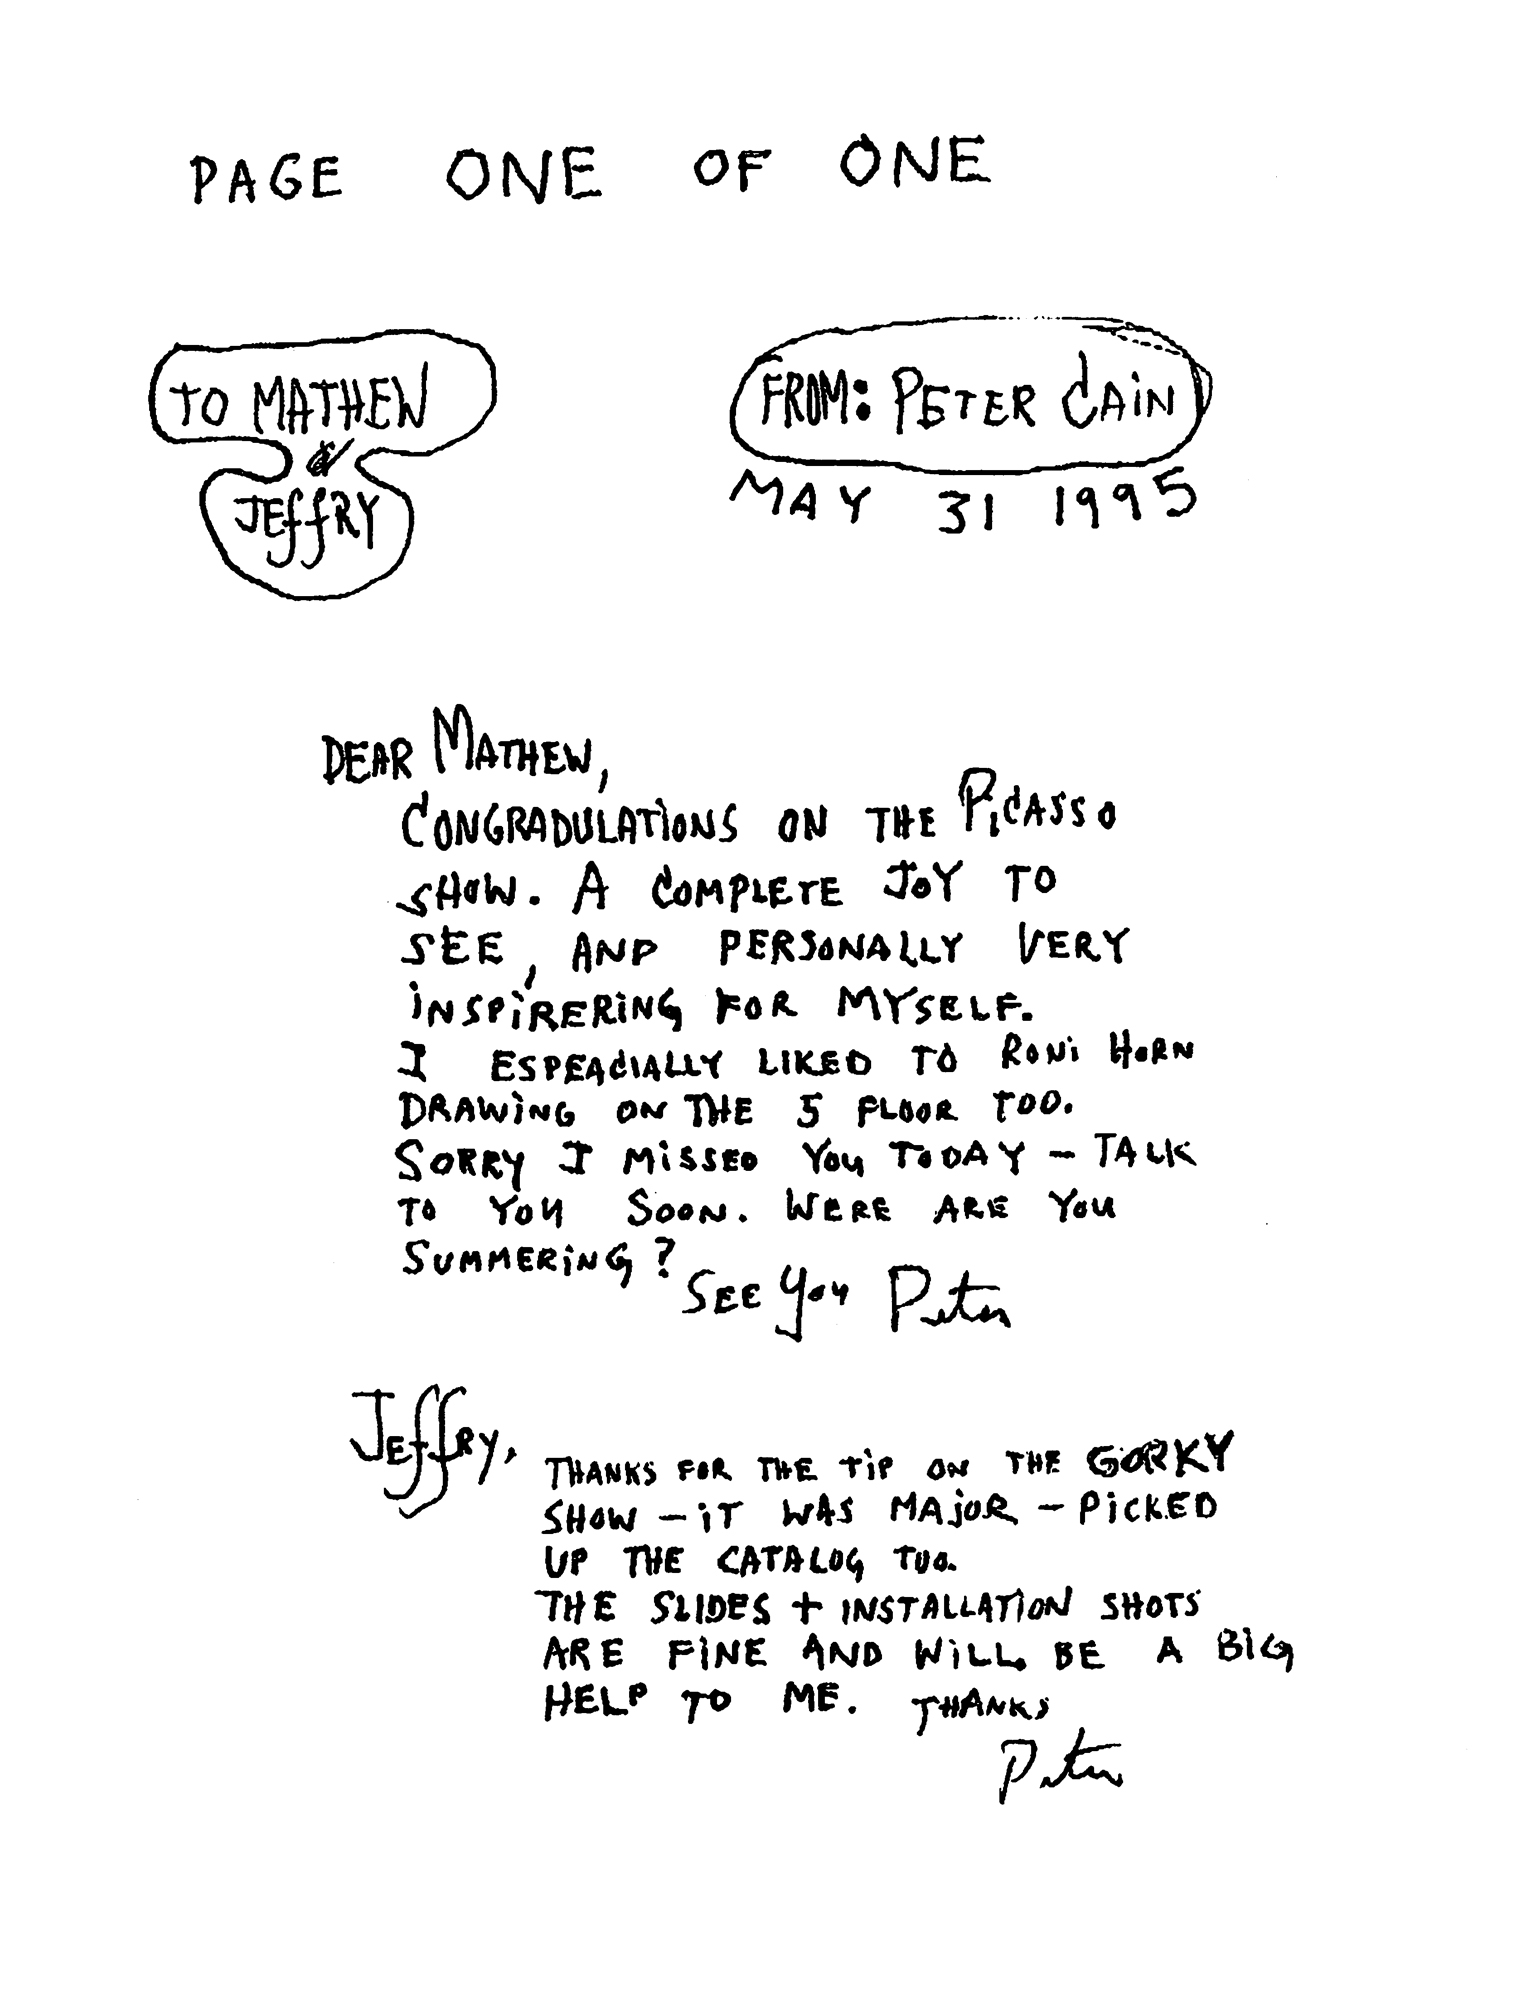 PAGE ONE OF ONE
TO MATHEW
&
JEffRY
FROM: PETER CAiN
MAY 31 1995
DEAR MATHEW,
CONGRADULATiONS ON THE PiCASSO
SHOW. A COMPLETE JOY TO
SEE, AND PERSONALLY VERY
iNSPiRERiNG FOR MYSELF.
I ESPEACIALLY LIKED TO RONi HORN
DRAWiNG ON THE 5 FLOOR TOO.
SORRY I MiSSED YOU TODAY – TALK
TO YOU SOON. WERE ARE YOU
SUMMERiNG?
SEE YOU Peter
JEffRY,
THANKS FOR THE TiP ON THE GORKY
SHOW – iT WAS MAjOR – PiCKED
UP THE CATALOG TOO.
THE SLIDES + INSTALLATiON SHOTS
ARE FiNE AND WiLL BE A BiG
HELP TO ME. THANKS
Peter